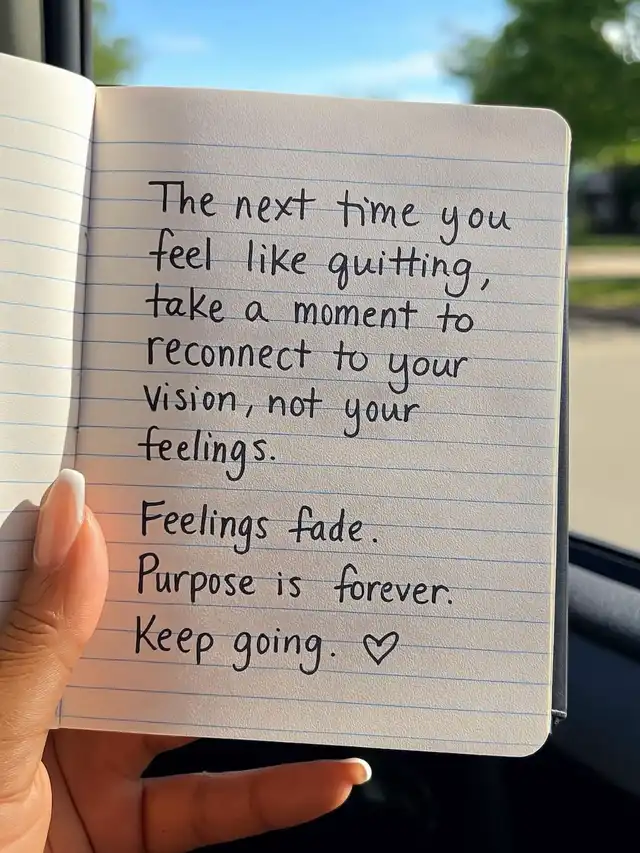 The next time you
feel like quitting,
take a moment to
reconnect to your
vision, not your
feelings.
Feelings fade.
Purpose is forever.
Keep going. ♡